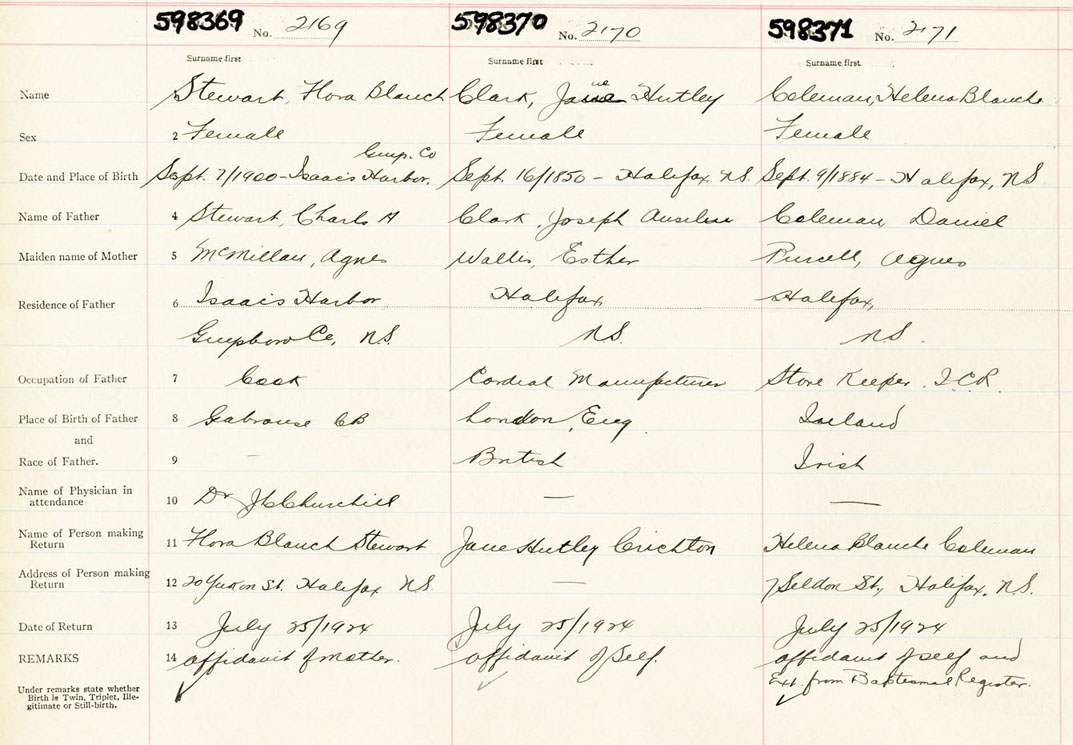 598369 No. 2169 598370 No. 2170 598371 No. 2171
Surname first Surname first Surname first
Name Stewart, Flora Blanch Clark, Jane Hutley Coleman, Helena Blanche
Sex 2 Female Female Female
Guys. Co
Date and Place of Birth Sept. 7/1900 - Isaacs Harbor. Sept. 16/1850 - Halifax N.S. Sept. 9/1884 - Halifax, NS
Name of Father 4 Stewart, Charls A Clark, Joseph Anselm Coleman, Daniel
Maiden name of Mother 5 McMillan, Agnes Wallis, Esther Purcell, Agnes
Residence of Father 6 Isaacs Harbor Halifax, Halifax,
Guysboro Co, N.S. N.S. N.S.
Occupation of Father 7 Cook Cordial Manufacturer Store Keeper I.C.R.
Place of Birth of Father 8 Gabrouse CB London, Eng. Ireland
and
Race of Father. 9 — British Irish
Name of Physician in attendance 10 Dr Churchill — —
Name of Person making Return 11 Flora Blanch Stewart Jane Hutley Crichton Helena Blanche Coleman
Address of Person making Return 12 20 Yukon St. Halifax N.S. — 7 Seldon St., Halifax. N.S.
Date of Return 13 July 25/1924 July 25/1924 July 25/1924
REMARKS 14 affidavit of Mother. affidavit of Self. affidavit of self and
Ext. from Baptesmal Register.
Under remarks state whether
Birth is Twin, Triplet, Ille-
gitimate or Still-birth.